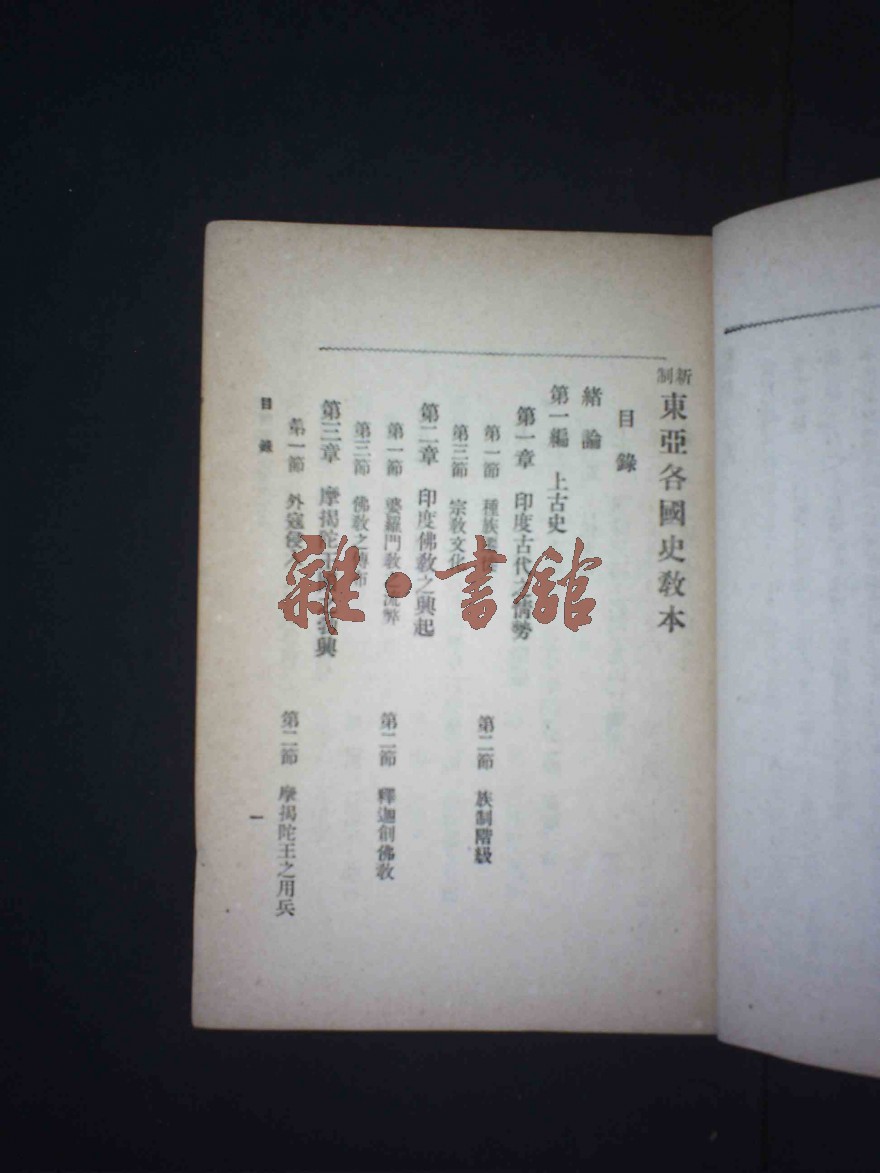 新制 東亞各國史教本
目錄
緒論
第一編 上古史
第一章 印度古代之情勢
第一節 種族 第二節 族制階級
第三節 宗教文化
第二章 印度佛教之興起
第一節 婆羅門教之流弊 第二節 釋迦創佛教
第三節 佛教之傳布
第三章 摩揭陀王 興
第一節 外寇侵 第二節 摩揭陀王之用兵
目錄 一
雜·書館